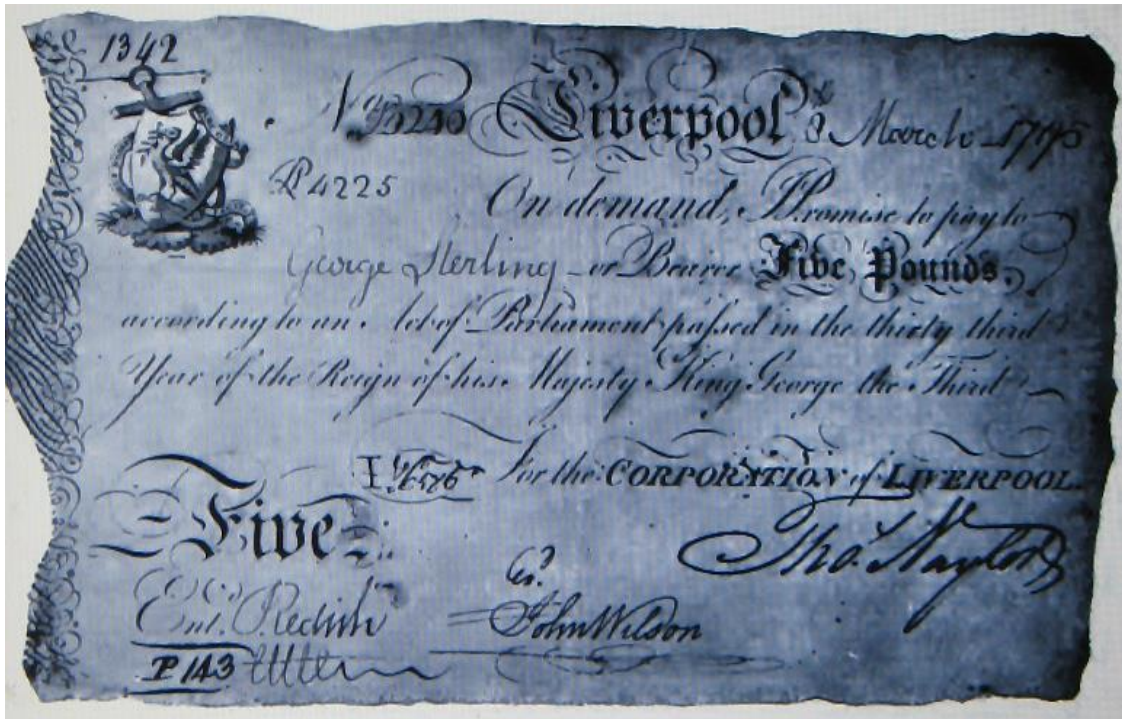 1342
Liverpool 8 March 1795
P 4225
On demand, I Promise to pay to
George Sterling or Bearer Five Pounds.
according to an Act of Parliament passed in the thirty third
Year of the Reign of his Majesty King George the Third
For the CORPORATION of LIVERPOOL.
Five
Thos. Naylor
Ent.
John Wilson
P 143